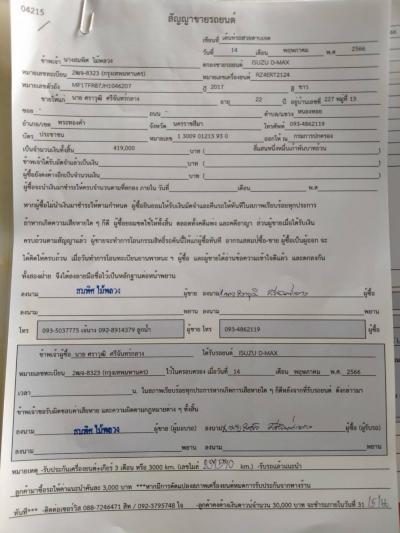 04215
สัญญาขายรถยนต์
เขียนที่ เต้นท์รถสวยตาบเดช
วันที่ 14 เดือน พฤษภาคม พ.ศ 2566
ข้าพเจ้า นางสมพิศ ไม้พลวง ตกลงขายรถยนต์ ISUZU D-MAX
หมายเลขทะเบียน 2ฒจ-8323 (กรุงเทพมหานคร) หมายเลขเครื่องยนต์ RZ4ERT2124
หมายเลขตัวถัง MP1TFR87JH1046207 ปี 2017 สี ขาว
ขายให้แก่ นาย ศราวุฒิ ศรีจันทร์กลาง อายุ 22 ปี อยู่บ้านเลขที่ 227 หมู่ที่ 13
ซอย - ถนน - ตำบล/แขวง หนองหอย
อำเภอ/เขต พระทองคำ จังหวัด นครราชสีมา โทรศัพท์ 093-4862119
บัตร ประชาชน หมายเลข 1 3009 01213 93 0 ออกให้ ณ กรมการปกครอง
เป็นจำนวนเงินทั้งสิ้น 419,000 บาท ( สี่แสนหนึ่งหมื่นเก้าพันบาทถ้วน
ข้าพเจ้าได้รับมัดจำแล้วเป็นเงิน บาท (
ผู้ซื้อยังคงค้างอีกเป็นจำนวนเงิน บาท (
ผู้ซื้อจะนำเงินมาชำระให้ครบจำนวนตามที่ตกลง ภายใน วันที่ เดือน พ.ศ
หากผู้ซื้อไม่นำเงินมาชำระให้ตามกำหนด ผู้ซื้อยินยอมให้ริบเงินมัดจำและคืนรถให้ทันทีในสภาพเรียบร้อยทุกประการ
ถ้าหากเกิดความเสียหายใด ๆ ก็ดี ผู้ซื้อยอมชดใช้ให้ทั้งสิ้น ตลอดทั้งคดีแพ่ง และคดีอาญา ส่วนผู้ขายเมื่อได้รับเงิน
ครบถ้วนตามสัญญาแล้ว ผู้ขายจะทำการโอนกรรมสิทธิ์รถคันนี้ให้แก่ผู้ซื้อทันที อากรแสตมป์ซื้อ-ขาย ผู้ซื้อเป็นผู้ออก จะ
ได้คิดให้ครบถ้วน เมื่อวันทำการโอนทะเบียนยานพาหนะ ฯ ผู้ซื้อ และผู้ขายได้อ่านข้อความเข้าใจดีแล้ว และตกลงกัน
ทั้งสองฝ่าย จึงได้ลงลายมือชื่อไว้เป็นหลักฐานต่อหน้าพยาน
ลงนาม สมพิศ ไม้พลวง ผู้ขาย ลงนาม ผู้ซื้อ
ลงนาม พยาน ลงนาม พยาน
โทร 093-5037775 เจ๊นาง 092-8914379 ลูกน้ำ ผู้ขาย โทร 093-4862119 ผู้ซื้อ
ข้าพเจ้าผู้ซื้อ นาย ศราวุฒิ ศรีจันทร์กลาง ได้รับรถยนต์ ISUZU D-MAX
หมายเลขทะเบียน 2ฒจ-8323 (กรุงเทพมหานคร) ไว้ในครอบครอง เมื่อวันที่ 14 เดือน พฤษภาคม พ.ศ. 2566
เวลา น. ในสภาพเรียบร้อยทุกประการหากเกิดการเสียหายใด ๆ ก็ดีหลังจากที่รับรถยนต์ ดังกล่าวมา
ข้าพเจ้าขอรับผิดชอบค่าเสียหาย และความผิดตามกฎหมายต่าง ๆ ทั้งสิ้น
ลงนาม สมพิศ ไม้พลวง ผู้ขาย (ผู้มอบรถ) ลงนาม ผู้ซื้อ (ผู้รับรถ)
ลงนาม พยาน ลงนาม พยาน
หมายเหตุ -รับประกันเครื่องยนต์+เกียร์ 3 เดือน หรือ 3000 km. (เลขไมล์ km.) -รับรถแลกแนะนำ
ลูกค้ามาซื้อรถให้ค่าแนะนำคันละ 3,000 บาท ***หากมีการดัดแปลงสภาพเครื่องยนต์หมดการรับประกันจากทางร้าน
ทันที*** -ติดต่อเซอร์วิส 088-7246471 สิท / 092-3795748 ใจ -ลูกค้าคงค้างเงินดาวน์จำนวน 30,000 บาท จะชำระภายในวันที่ 31